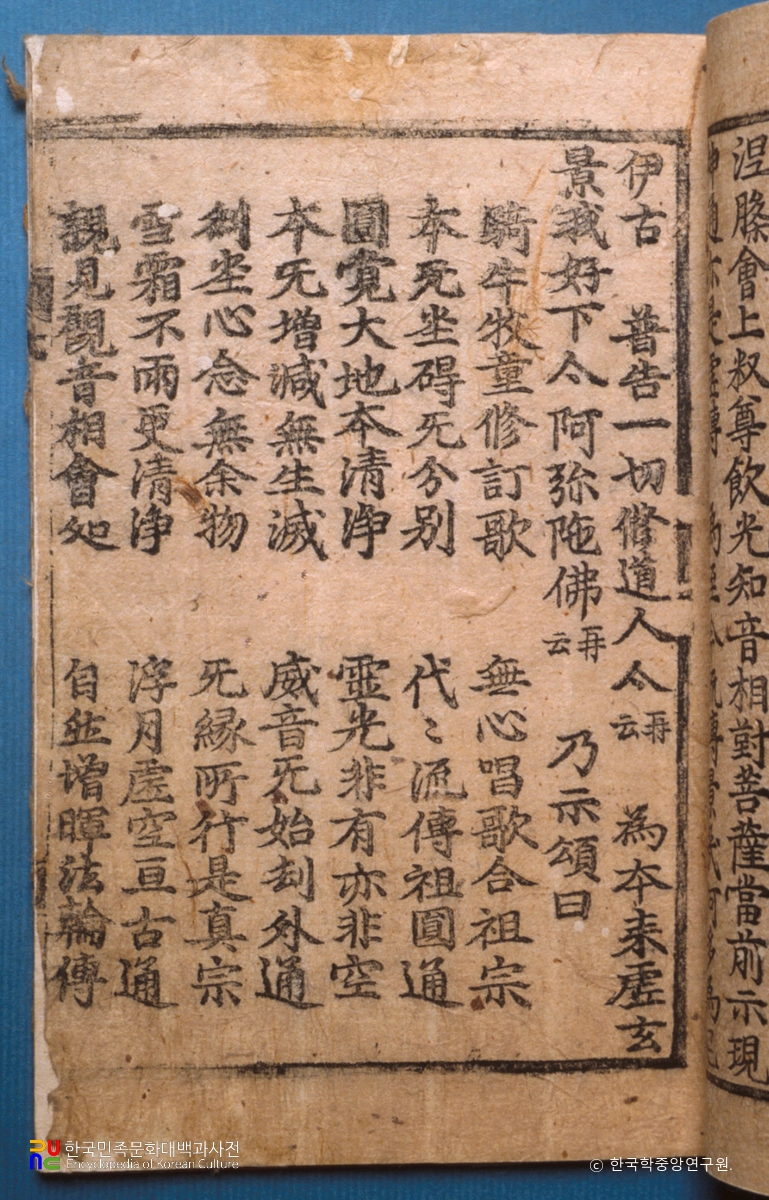 會上叔尊飲光知音相對菩薩當前示現
伊古 普告一切修道人亽 再云 為本来虛玄
景我好下亽阿弥陁佛 再云 乃示頌曰
騎牛牧童修訂歌 無心唱歌合祖宗
本无坐碍无分别 代〻流傳祖圓通
圓覔大地本清浄 霊光非有亦非空
本无增減無生滅 威音无始刦外通
刹坐心念無余物 无緣所行是真宗
雪霜不雨更清浄 浮月虛空亘古通
親見觀音相會処 自然增暉法輪傳
한국민족문화대백과사전
Encyclopedia of Korean Culture
© 한국학중앙연구원.